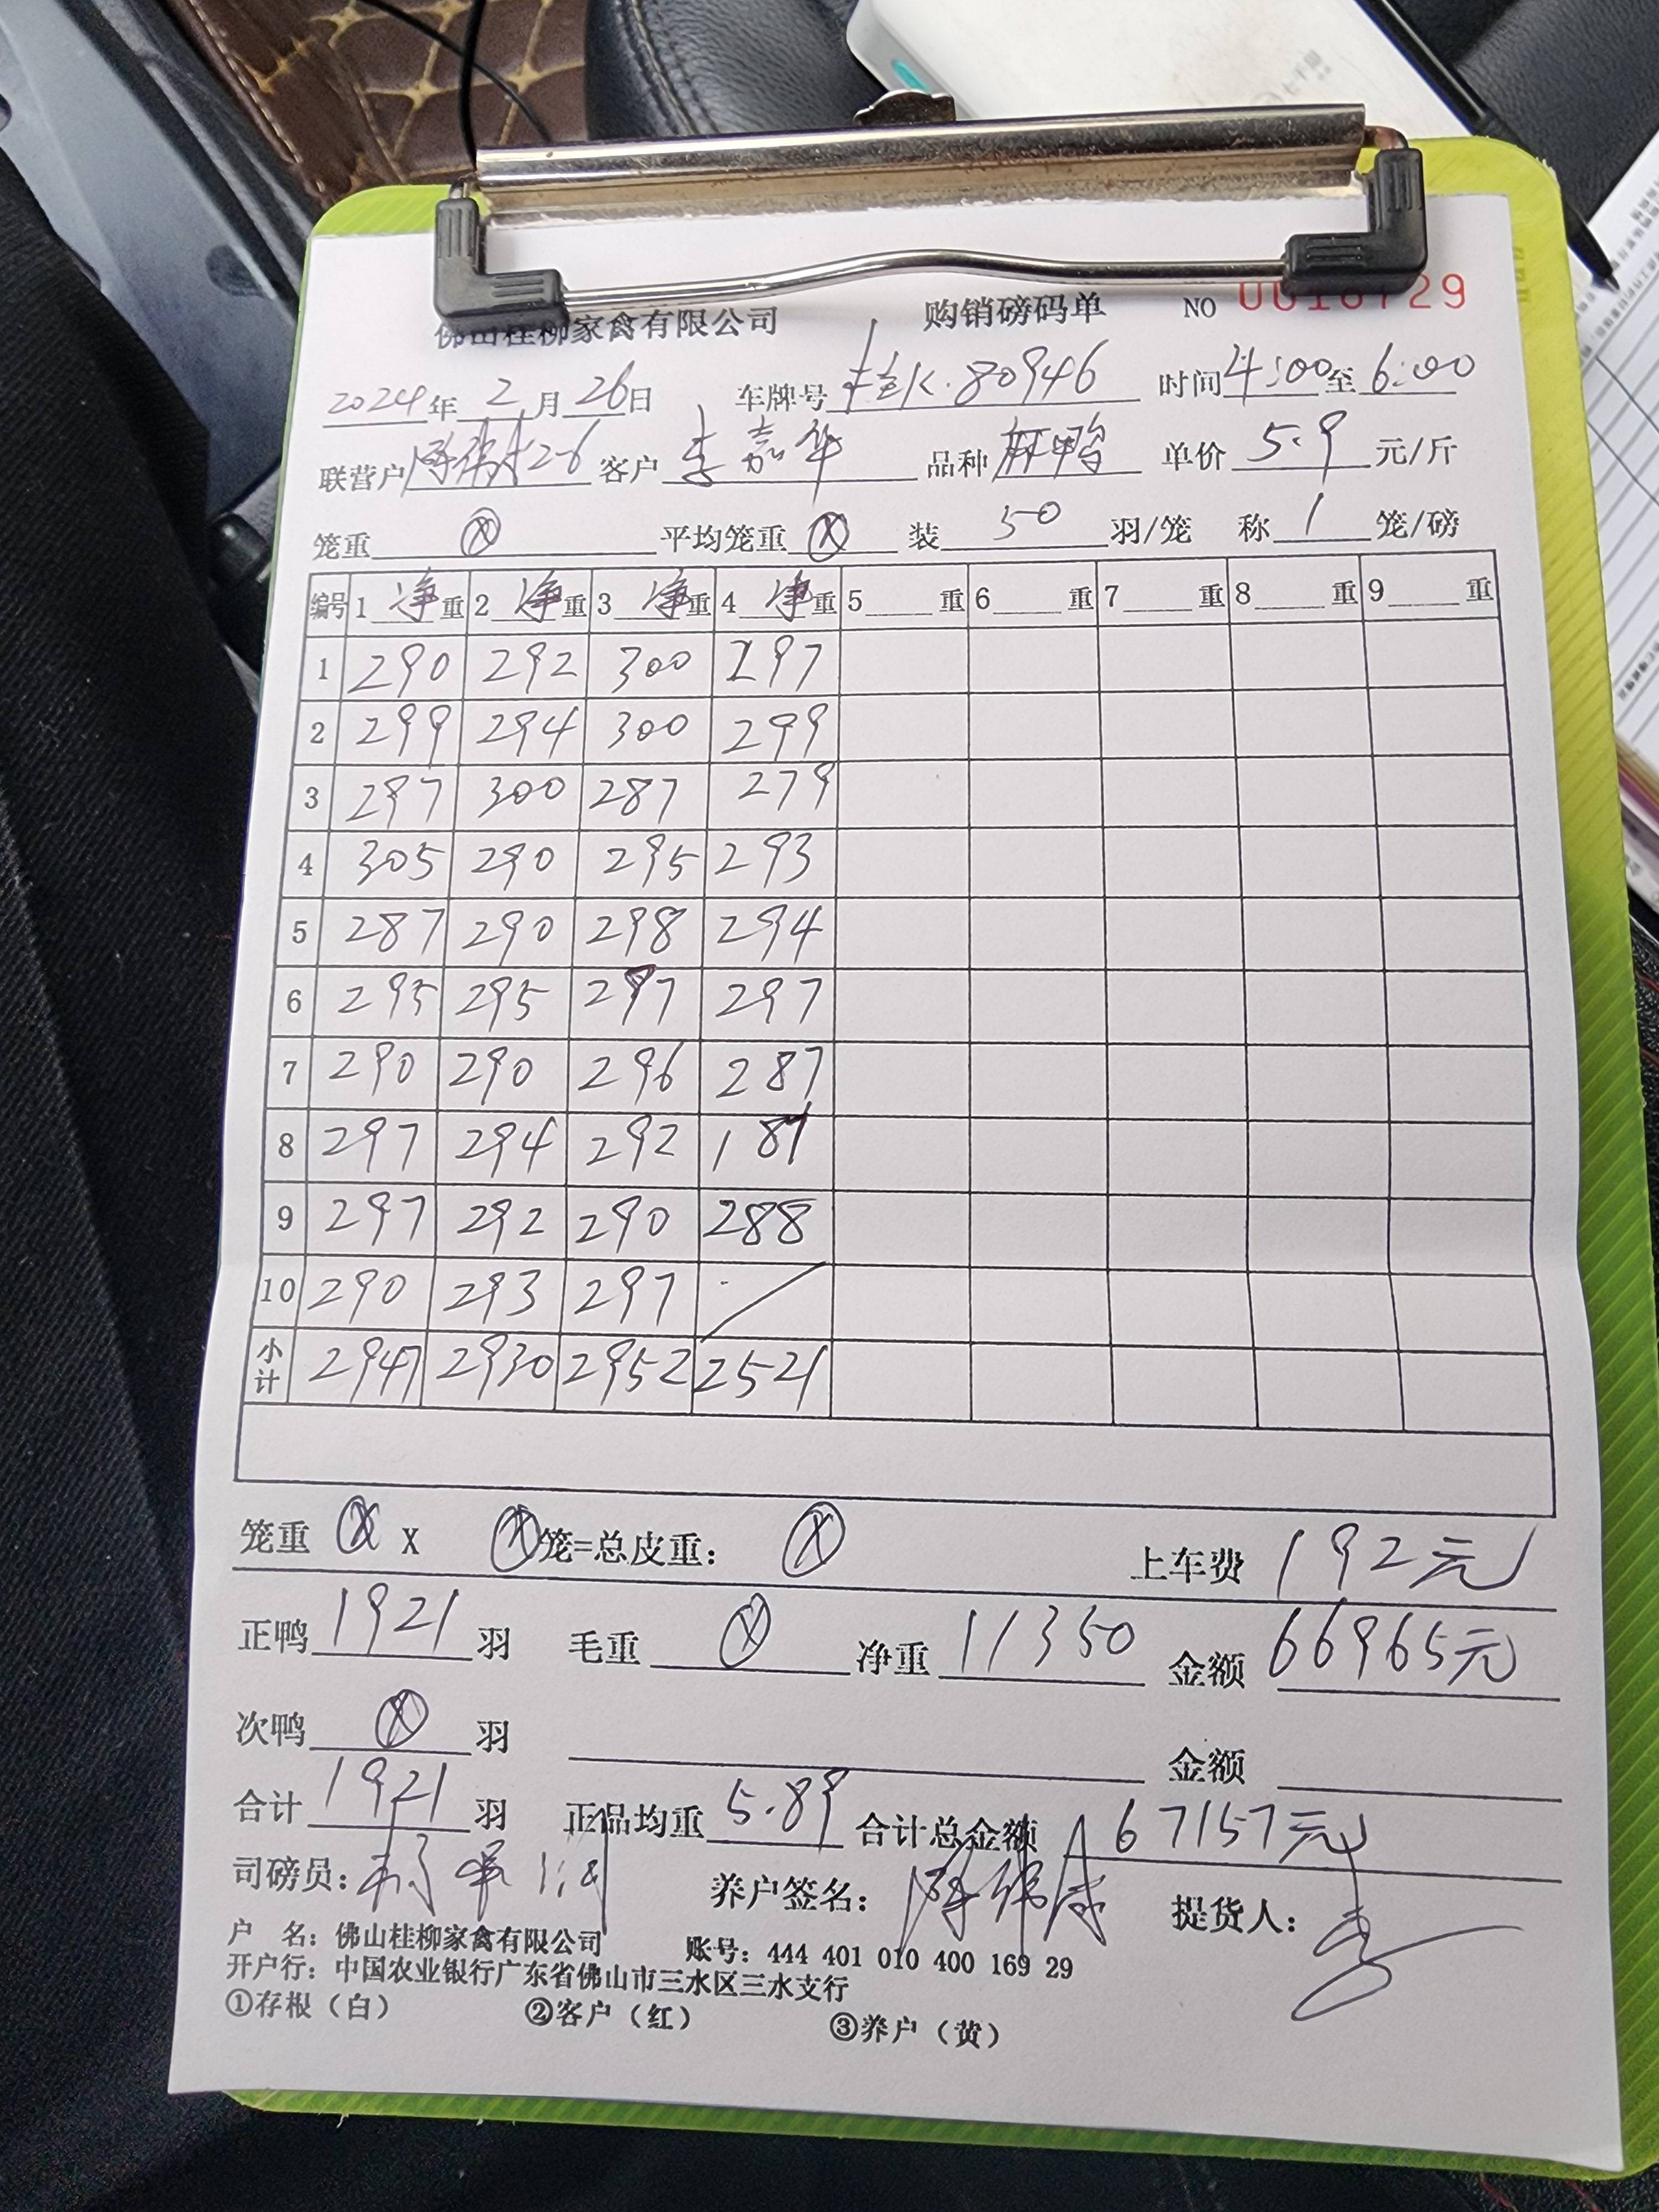 佛山桂柳家禽有限公司 购销磅码单 NO 0018729
2024年 2月 26日 车牌号 桂K·80946 时间 4:00至 6:00
联营户 26 客户 李嘉华 品种 麻鸭 单价 5.9 元/斤
笼重 ⓧ 平均笼重 ⓧ 装 50 羽/笼 称 1 笼/磅
编号 1 净 重 2 净 重 3 净 重 4 净 重 5 重 6 重 7 重 8 重 9 重
1 290 292 300 297
2 299 294 300 299
3 297 300 287 279
4 305 290 295 293
5 287 290 298 294
6 295 295 297 297
7 290 290 296 287
8 297 294 292 187
9 297 292 290 288
10 290 293 297 /
小计 2947 2930 2952 2521
笼重 ⓧ X ⓧ 笼=总皮重: ⓧ 上车费 192元
正鸭 1921 羽 毛重 ⓧ 净重 11350 金额 66965元
次鸭 ⓧ 羽 金额
合计 1921 羽 正品均重 5.89 合计总金额 67157元
司磅员: 养户签名: 提货人: 李
户 名: 佛山桂柳家禽有限公司 账号: 444 401 010 400 169 29
开户行: 中国农业银行广东省佛山市三水区三水支行
①存根（白） ②客户（红） ③养户（黄）